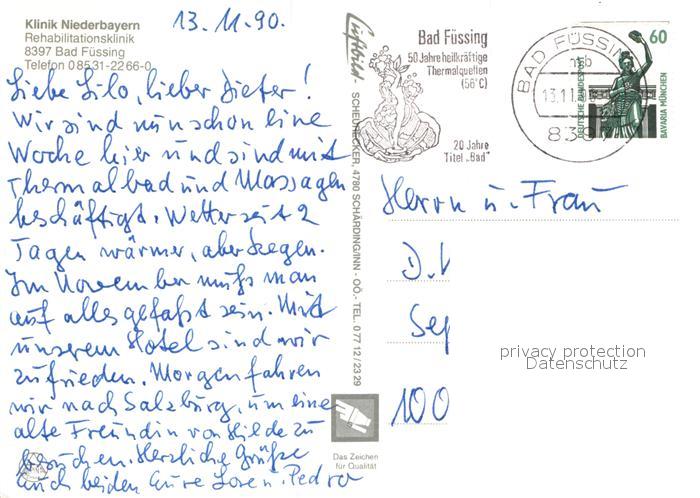 13.11.90.
Klinik Niederbayern
Rehabilitationsklinik
8397 Bad Füssing
Telefon 0 85 31-22 66-0
Liebe Lilo, lieber Dieter!
Wir sind nun schon eine
Woche hier und sind mit
Thermalbad und Massagen
beschäftigt. Wetter seit 2
Tagen wärmer, aber Regen.
Im November muß man
auf alles gefaßt sein. Mit
unserem Hotel sind wir
zufrieden. Morgen fahren
wir nach Salzburg, um eine
alte Freundin von Hilde zu
besuchen. Herzliche Grüße
Euch beiden Eure u. Pedro
Luftbild - SCHEUHECKER, 4780 SCHÄRDING/INN - OÖ. - TEL. 0 77 12 / 23 29
Das Zeichen
für Qualität
Bad Füssing
50 Jahre heilkräftige
Thermalquellen
(56°C)
20 Jahre
Titel „Bad"
BAD FÜSSING
mb
13.11.
839
60
DEUTSCHE BUNDESPOST
BAVARIA MÜNCHEN
Herrn u. Frau
D.
Sep
100
privacy protection
Datenschutz